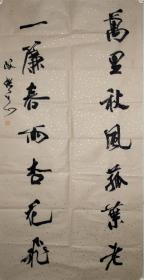 萬里秋風菰葉老
一簾春雨杏花飛